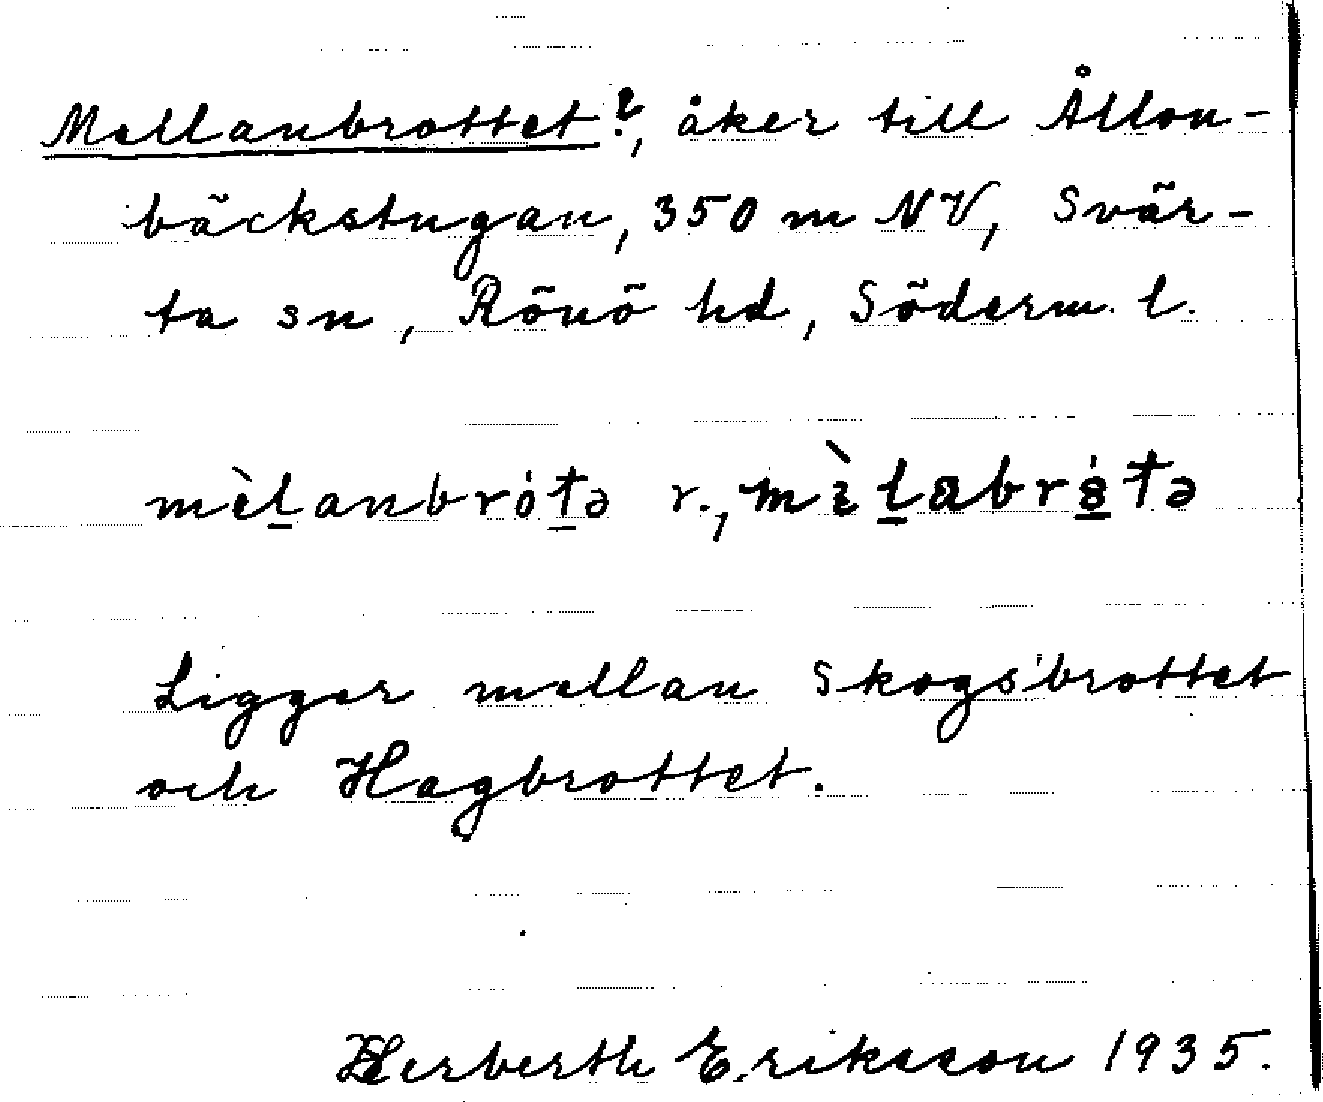 Mellanbrottet?, åker till Ållon-
bäckstugan, 350 m NV, Svär-
ta sn, Rönö hd, Söderm. l.
mèl̲anbrót̲ə r.,
Ligger mellan Skogs'brottet
och Hagbrottet.
Herberth Eriksson 1935.